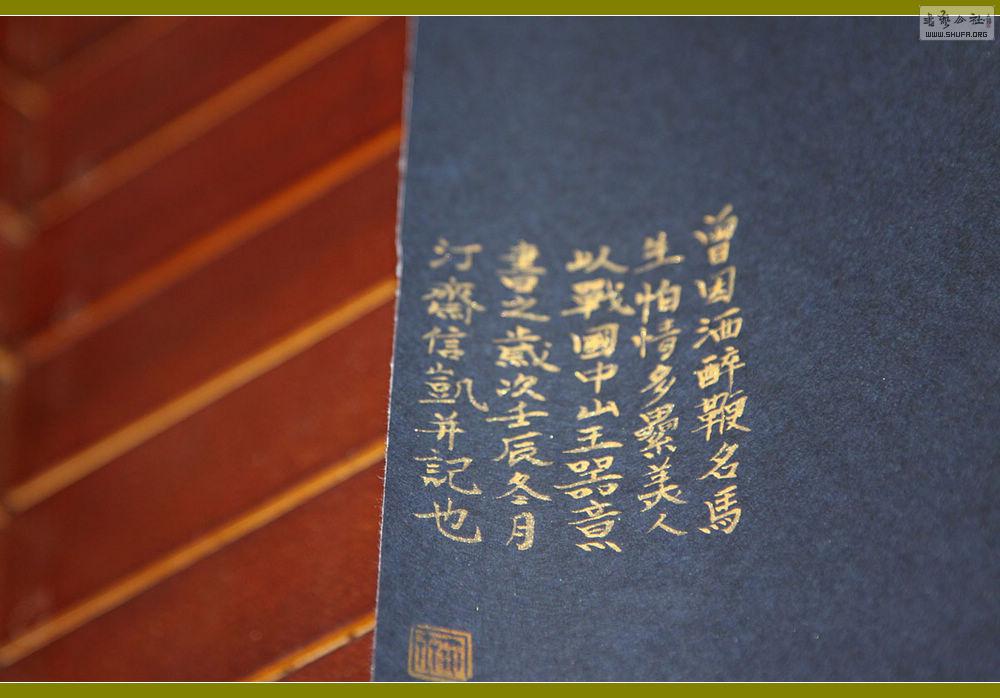 曾因酒醉鞭名馬
生怕情多纍美人
以戰國中山王器意
書之歲次壬辰冬月
汀齋信凱并記也
书艺公社
WWW.SHUFA.ORG